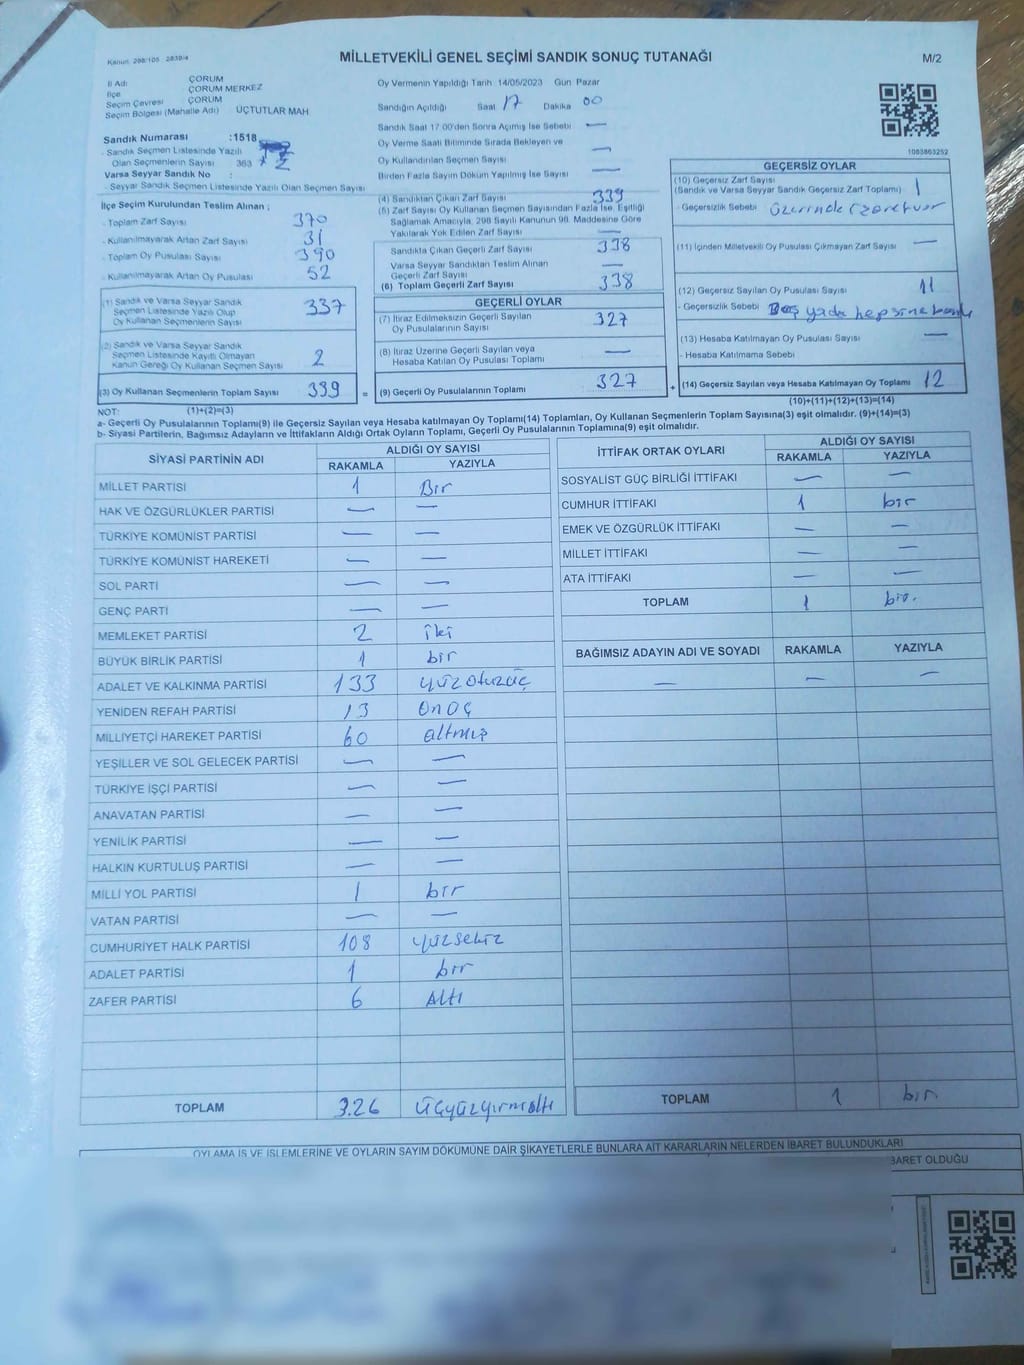 Kanun 298/105 2839/4
MİLLETVEKİLİ GENEL SEÇİMİ SANDIK SONUÇ TUTANAĞI
M/2
İl Adı ÇORUM
İlçe ÇORUM MERKEZ
Seçim Çevresi ÇORUM
Seçim Bölgesi (Mahalle Adı) ÜÇTUTLAR MAH
Sandık Numarası :1518
- Sandık Seçmen Listesinde Yazılı
Olan Seçmenlerin Sayısı 363 + 2
Varsa Seyyar Sandık No :
- Seyyar Sandık Seçmen Listesinde Yazılı Olan Seçmen Sayısı
İlçe Seçim Kurulundan Teslim Alınan ;
- Toplam Zarf Sayısı 370
- Kullanılmayarak Artan Zarf Sayısı 31
- Toplam Oy Pusulası Sayısı 390
- Kullanılmayarak Artan Oy Pusulası 52
(1) Sandık ve Varsa Seyyar Sandık
Seçmen Listesinde Yazılı Olup
Oy Kullanan Seçmenlerin Sayısı 337
(2) Sandık ve Varsa Seyyar Sandık
Seçmen Listesinde Kayıtlı Olmayan
Kanun Gereği Oy Kullanan Seçmen Sayısı 2
(3) Oy Kullanan Seçmenlerin Toplam Sayısı 339 =
Oy Vermenin Yapıldığı Tarih 14/05/2023 Gün Pazar
Sandığın Açıldığı Saat 17 Dakika 00
Sandık Saat 17.00'den Sonra Açılmış İse Sebebi —
Oy Verme Saati Bitiminde Sırada Bekleyen ve
Oy Kullandırılan Seçmen Sayısı —
Birden Fazla Sayım Döküm Yapılmış İse Sayısı —
(4) Sandıktan Çıkan Zarf Sayısı 339
(5) Zarf Sayısı Oy Kullanan Seçmen Sayısından Fazla İse, Eşitliği
Sağlamak Amacıyla, 298 Sayılı Kanunun 98. Maddesine Göre
Yakılarak Yok Edilen Zarf Sayısı —
Sandıkta Çıkan Geçerli Zarf Sayısı 338
Varsa Seyyar Sandıktan Teslim Alınan
Geçerli Zarf Sayısı —
(6) Toplam Geçerli Zarf Sayısı 338
GEÇERLİ OYLAR
(7) İtiraz Edilmeksizin Geçerli Sayılan
Oy Pusulalarının Sayısı 327
(8) İtiraz Üzerine Geçerli Sayılan veya
Hesaba Katılan Oy Pusulası Toplamı —
(9) Geçerli Oy Pusulalarının Toplamı 327 +
1083863252
GEÇERSİZ OYLAR
(10) Geçersiz Zarf Sayısı
(Sandık ve Varsa Seyyar Sandık Geçersiz Zarf Toplamı) 1
- Geçersizlik Sebebi üzerinde işaret var
(11) İçinden Milletvekili Oy Pusulası Çıkmayan Zarf Sayısı —
(12) Geçersiz Sayılan Oy Pusulası Sayısı 11
- Geçersizlik Sebebi Boş yada hepsine
(13) Hesaba Katılmayan Oy Pusulası Sayısı —
- Hesaba Katılmama Sebebi
(14) Geçersiz Sayılan veya Hesaba Katılmayan Oy Toplamı 12
(10)+(11)+(12)+(13)=(14)
NOT: (1)+(2)=(3)
a- Geçerli Oy Pusulalarının Toplamı(9) ile Geçersiz Sayılan veya Hesaba katılmayan Oy Toplamı(14) Toplamları, Oy Kullanan Seçmenlerin Toplam Sayısına(3) eşit olmalıdır. (9)+(14)=(3)
b- Siyasi Partilerin, Bağımsız Adayların ve İttifakların Aldığı Ortak Oyların Toplamı, Geçerli Oy Pusulalarının Toplamına(9) eşit olmalıdır.
SİYASİ PARTİNİN ADI ALDIĞI OY SAYISI
RAKAMLA YAZIYLA
MİLLET PARTİSİ 1 Bir
HAK VE ÖZGÜRLÜKLER PARTİSİ — —
TÜRKİYE KOMÜNİST PARTİSİ — —
TÜRKİYE KOMÜNİST HAREKETİ — —
SOL PARTİ — —
GENÇ PARTİ — —
MEMLEKET PARTİSİ 2 iki
BÜYÜK BİRLİK PARTİSİ 1 bir
ADALET VE KALKINMA PARTİSİ 133 yüzotuzüç
YENİDEN REFAH PARTİSİ 13 onüç
MİLLİYETÇİ HAREKET PARTİSİ 60 altmış
YEŞİLLER VE SOL GELECEK PARTİSİ — —
TÜRKİYE İŞÇİ PARTİSİ — —
ANAVATAN PARTİSİ — —
YENİLİK PARTİSİ — —
HALKIN KURTULUŞ PARTİSİ — —
MİLLİ YOL PARTİSİ 1 bir
VATAN PARTİSİ — —
CUMHURİYET HALK PARTİSİ 108 yüzsekiz
ADALET PARTİSİ 1 bir
ZAFER PARTİSİ 6 Altı
TOPLAM 326 üçyüzyirmialtı
İTTİFAK ORTAK OYLARI ALDIĞI OY SAYISI
RAKAMLA YAZIYLA
SOSYALİST GÜÇ BİRLİĞİ İTTİFAKI — —
CUMHUR İTTİFAKI 1 bir
EMEK VE ÖZGÜRLÜK İTTİFAKI — —
MİLLET İTTİFAKI — —
ATA İTTİFAKI — —
TOPLAM 1 bir.
BAĞIMSIZ ADAYIN ADI VE SOYADI RAKAMLA YAZIYLA
— — —
TOPLAM 1 bir
OYLAMA İŞ VE İŞLEMLERİNE VE OYLARIN SAYIM DÖKÜMÜNE DAİR ŞİKAYETLERLE BUNLARA AİT KARARLARIN NELERDEN İBARET BULUNDUKLARI
BARET OLDUĞU